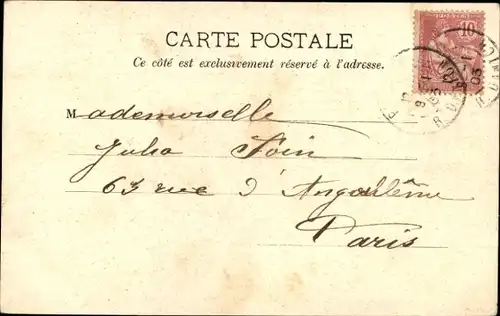 10
CARTE POSTALE
Ce côté est exclusivement réservé à l'adresse.
Mademoiselle
Julia Foin
63 rue d'Angoulême
Paris